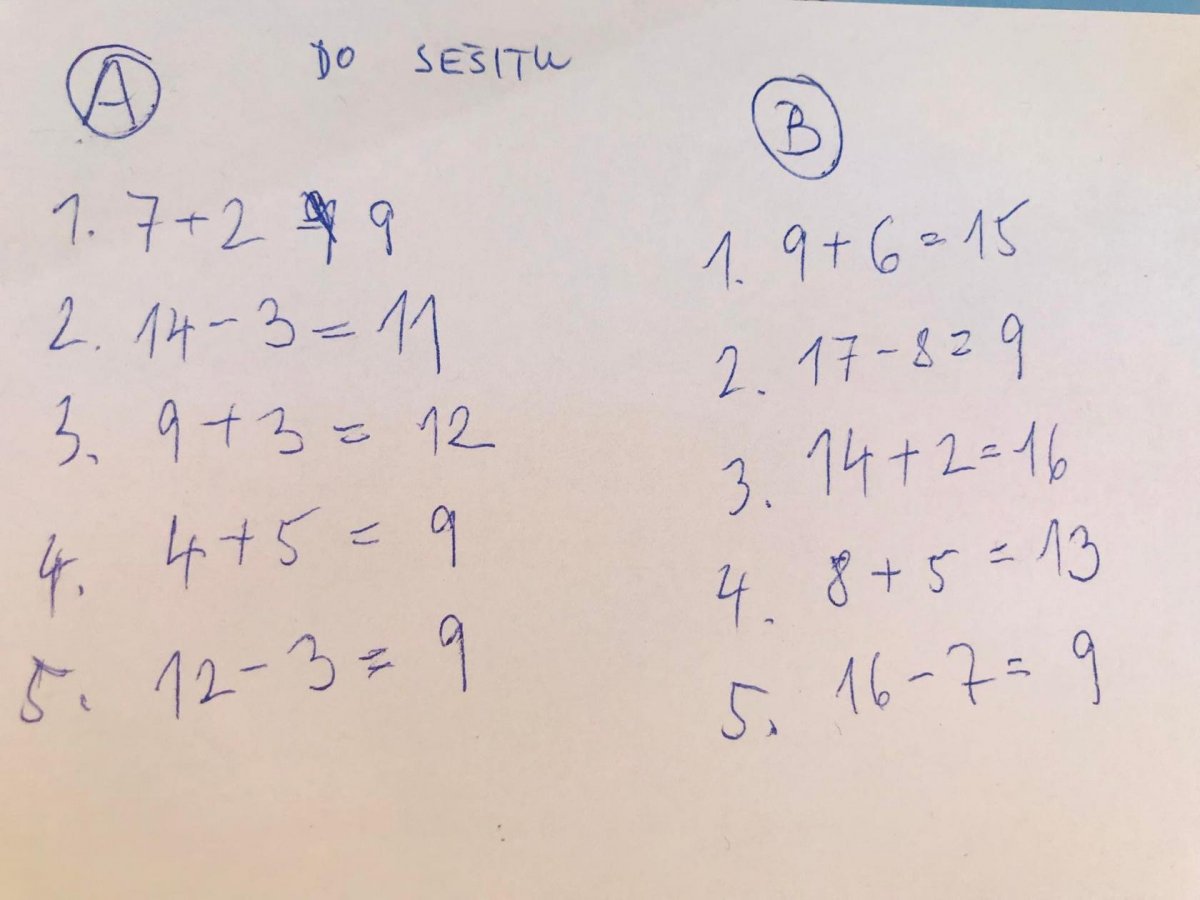 DO SEŠITU
A
1. 7+2 = 9
2. 14-3=11
3. 9+3 = 12
4. 4+5 = 9
5. 12-3= 9
B
1. 9+6=15
2. 17-8=9
3. 14+2=16
4. 8+5=13
5. 16-7=9